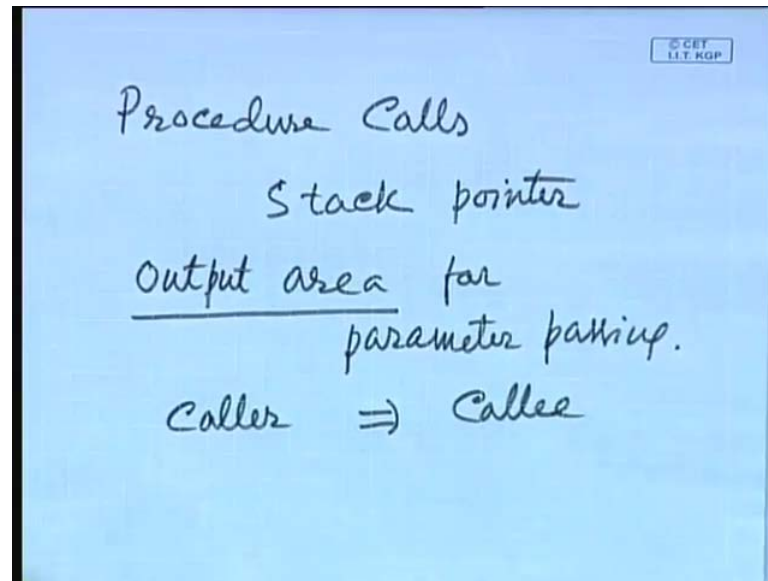 © CET
I.I.T. KGP
Procedure Calls
Stack pointer
Output area for
parameter passing.
Caller ⇒ Callee